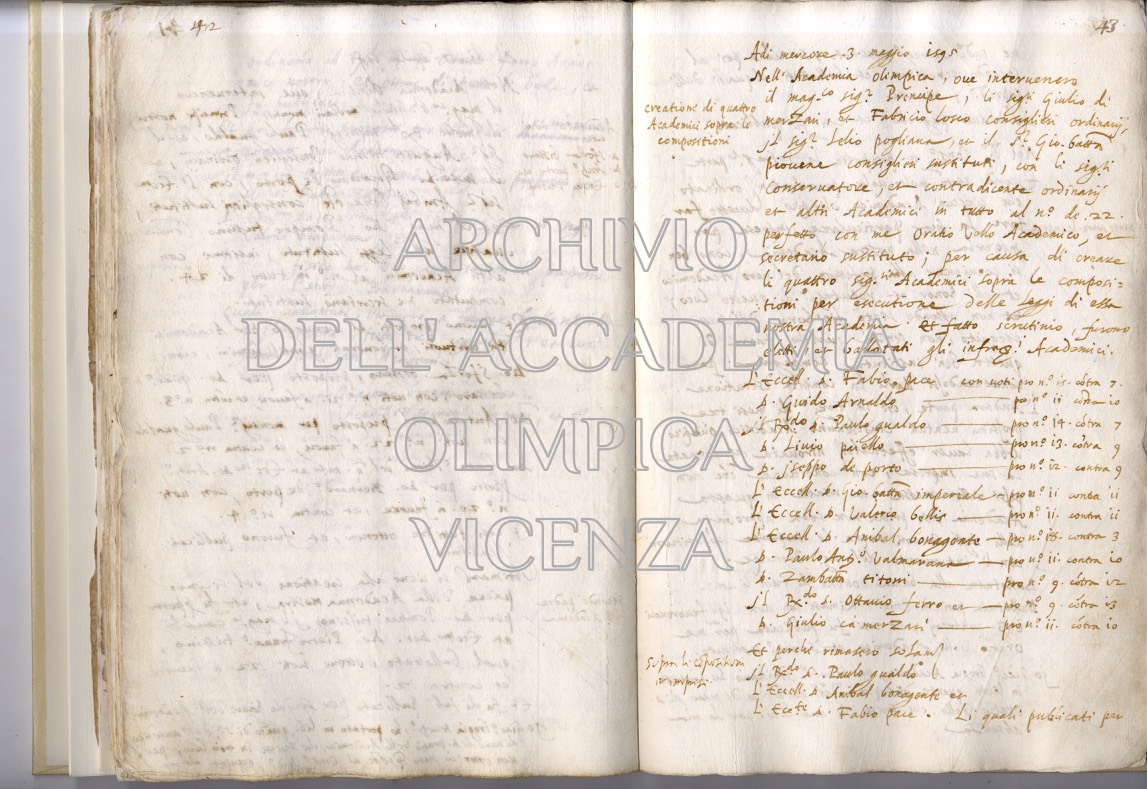 42
43
Adi mercore 3. maggio 1595
Nell' Academia olimpica, ove intervenero
il mag.co sig.r Prencipe, li sig.ri Giulio di
merZari, et Fabricio losco consiglieri ordinarij,
jl sig.r Lelio pogliana, et il S.r Gio. batta
piovene consiglieri sustituti, con li sig.ri
Conservatore et contradicente ordinarij
et altri Academici in tutto al n.o de .22.
perfetto con me Oratio Vello Academico, et
secretario sustituto; per causa di creare
li quattro sig.ri Academici sopra le composi-
tioni per esecutione delle Leggi di essa
nostra Academia. Et fatto scrutinio, furono
eletti, et ballotati gli infras.ti Academici.
creatione di quattro
Academici sopra le
compositioni
L' Eccell. s. Fabio pace con voti pro n.o 15. cotra 7.
s. Guido Arnaldo pro n.o 11 cotra 10
jl R.do s. Paulo gualdo pro n.o 14. cotra 7
s. Livio paiello pro n.o 13. cotra 9
s. jseppo de porto pro n.o 12. contra 9
L' Eccell. s. Gio. batta imperiale pro n.o 11 contra 11
L' Eccell. s. Valerio bellis pro n.o 11. contra 11
L' Eccell. s. Anibal bonagente pro n.o 18. contra 3
s. Paulo Ant.o Valmarana pro n.o 11. contra 10
s. Zambatta titoni pro n.o 9. cotra 12
jl R.do s. Ottavio ferro et pro n.o 9. cotra 13
s. Giulio ca merZari pro n.o 11. cotra 10
Et perche rimasero solam.
jl R.do s. Paulo gualdo
L' Eccell. s. Anibal bonagente et
L' Ecc.te s. Fabio pace. Li quali publicati per
Sopra le copositioni
rimasi
ARCHIVIO
DELL'ACCADEMIA
OLIMPICA
VICENZA